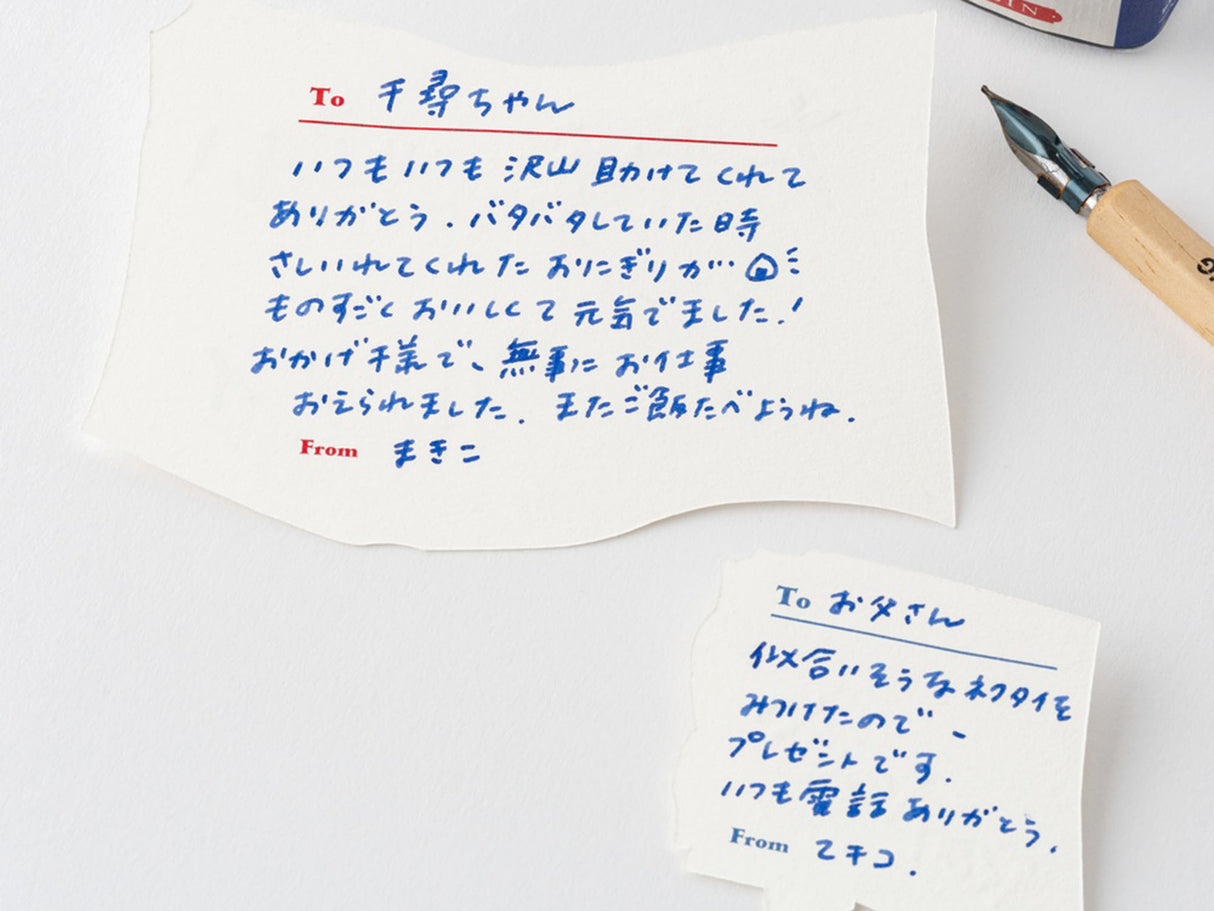 To 千尋ちゃん
いつもいつも 沢山 助けてくれて
ありがとう. バタバタしていた時
さしいれてくれた おにぎりが…
ものすごく おいしくて 元気でました!
おかげ様で、無事に お仕事
おえられました. またご飯たべようね.
From まきこ
To お父さん
似合いそうなネクタイを
みつけたので-
プレゼントです.
いつも電話ありがとう.
From